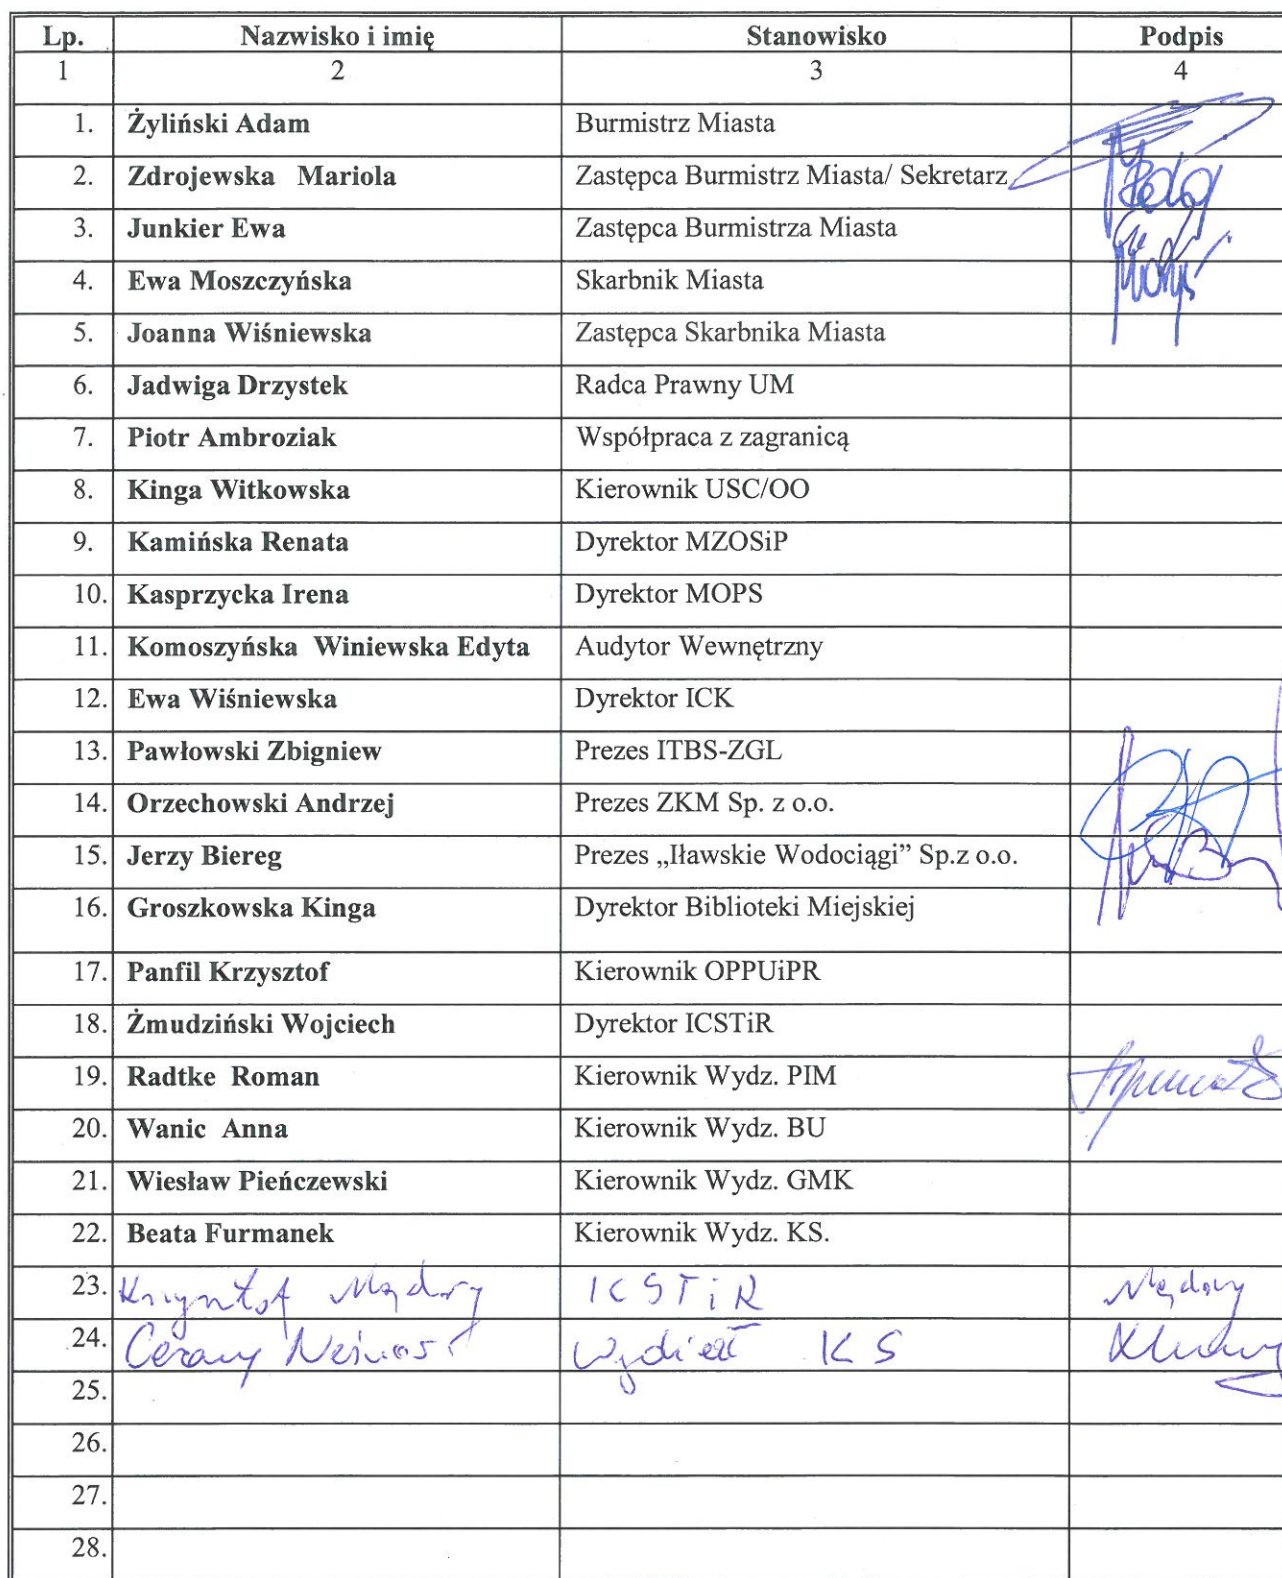 Lp. Nazwisko i imię Stanowisko Podpis
1 2 3 4
1. Żyliński Adam Burmistrz Miasta
2. Zdrojewska Mariola Zastępca Burmistrz Miasta/ Sekretarz
3. Junkier Ewa Zastępca Burmistrza Miasta
4. Ewa Moszczyńska Skarbnik Miasta
5. Joanna Wiśniewska Zastępca Skarbnika Miasta
6. Jadwiga Drzystek Radca Prawny UM
7. Piotr Ambroziak Współpraca z zagranicą
8. Kinga Witkowska Kierownik USC/OO
9. Kamińska Renata Dyrektor MZOSiP
10. Kasprzycka Irena Dyrektor MOPS
11. Komoszyńska Winiewska Edyta Audytor Wewnętrzny
12. Ewa Wiśniewska Dyrektor ICK
13. Pawłowski Zbigniew Prezes ITBS-ZGL
14. Orzechowski Andrzej Prezes ZKM Sp. z o.o.
15. Jerzy Biereg Prezes „Iławskie Wodociągi” Sp.z o.o.
16. Groszkowska Kinga Dyrektor Biblioteki Miejskiej
17. Panfil Krzysztof Kierownik OPPUiPR
18. Żmudziński Wojciech Dyrektor ICSTiR
19. Radtke Roman Kierownik Wydz. PIM
20. Wanic Anna Kierownik Wydz. BU
21. Wiesław Pieńczewski Kierownik Wydz. GMK
22. Beata Furmanek Kierownik Wydz. KS.
23. Krzysztof Mądry ICSTiR Mądry
24. Cezary Wydział KS
25.
26.
27.
28.